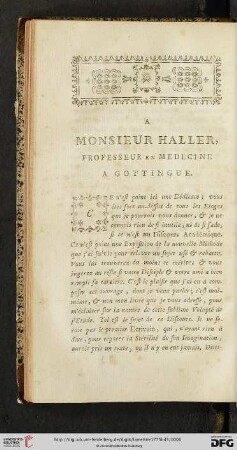 A
MONSIEUR HALLER,
PROFESSEUR EN MEDECINE
A GOTTINGUE.
CE n'est point ici une Dédicace ; vous
êtes fort au-dessus de tous les Eloges
que je pourrois vous donner ; & je ne
connois rien de si inutile, ni de si fade,
si ce n'est un Discours Académique.
Ce n'est point une Exposition de la nouvelle Méthode
que j'ai suivie pour relever un sujet usé & rebattu.
Vous lui trouverez du moins ce mérite ; & vous
jugerez au reste si votre Disciple & votre ami a bien
rempli sa carrière. C'est le plaisir que j'ai eu à com-
poser cet ouvrage, dont je veux parler ; c'est moi-
même, & non mon livre que je vous adresse, pour
m'éclairer sur la nature de cette sublime Volupté de
l'Etude. Tel est le sujet de ce Discours. Je ne se-
rois pas le premier Ecrivain, qui, n'ayant rien à
dire, pour réparer la Stérilité de son Imagination,
auroit pris un texte, où il n'y en eut jamais. Dites-